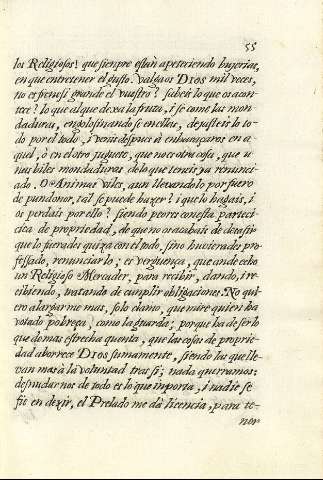 55
los Religiosos! que siempre estàn apeteciendo bujerias,
en que entretener el gusto. Valgaos DIOS mil veces,
no es frenesi grande el vuestro? sabeis lo que os acon-
tece? lo que al que dexa la fruta, i se come las mon-
daduras, engolosinandose en ellas, dejasteis lo to-
do por el todo, i venis despues à embarazaros en a-
quel, ò en el otro juguete, que no es otra cosa, que u-
nas viles mondaduras de lo que teneis ya renunci-
ado. O Animas viles, aun llevandolo por fuero
de pundonor, tal se puede hazer? i que lo hagais, i
os perdais por ello? siendo peores con esta parteci-
ca de propriedad, de que no acabais de desasir
que lo fuerades quiza con el todo, sino huvierades pro-
fessado, renunciarlo; es verguença, que ande echo
un Religioso Mercader, para recibir, dando, i re-
cibiendo, tratando de cumplir obligaciones. No qui-
ero alargarme mas, solo clamo, que mire quien ha
votado pobreça, como la guarda; porque ha de ser lo
que de mas estrecha quenta, que las cosas de proprie-
dad aborrece DIOS sumamente, siendo las que lle-
van mas à la voluntad tras si; nada queramos;
desnudarnos de todo es lo que importa, i nadie se
fie en dezir, el Prelado me dà licencia, para te-
ner